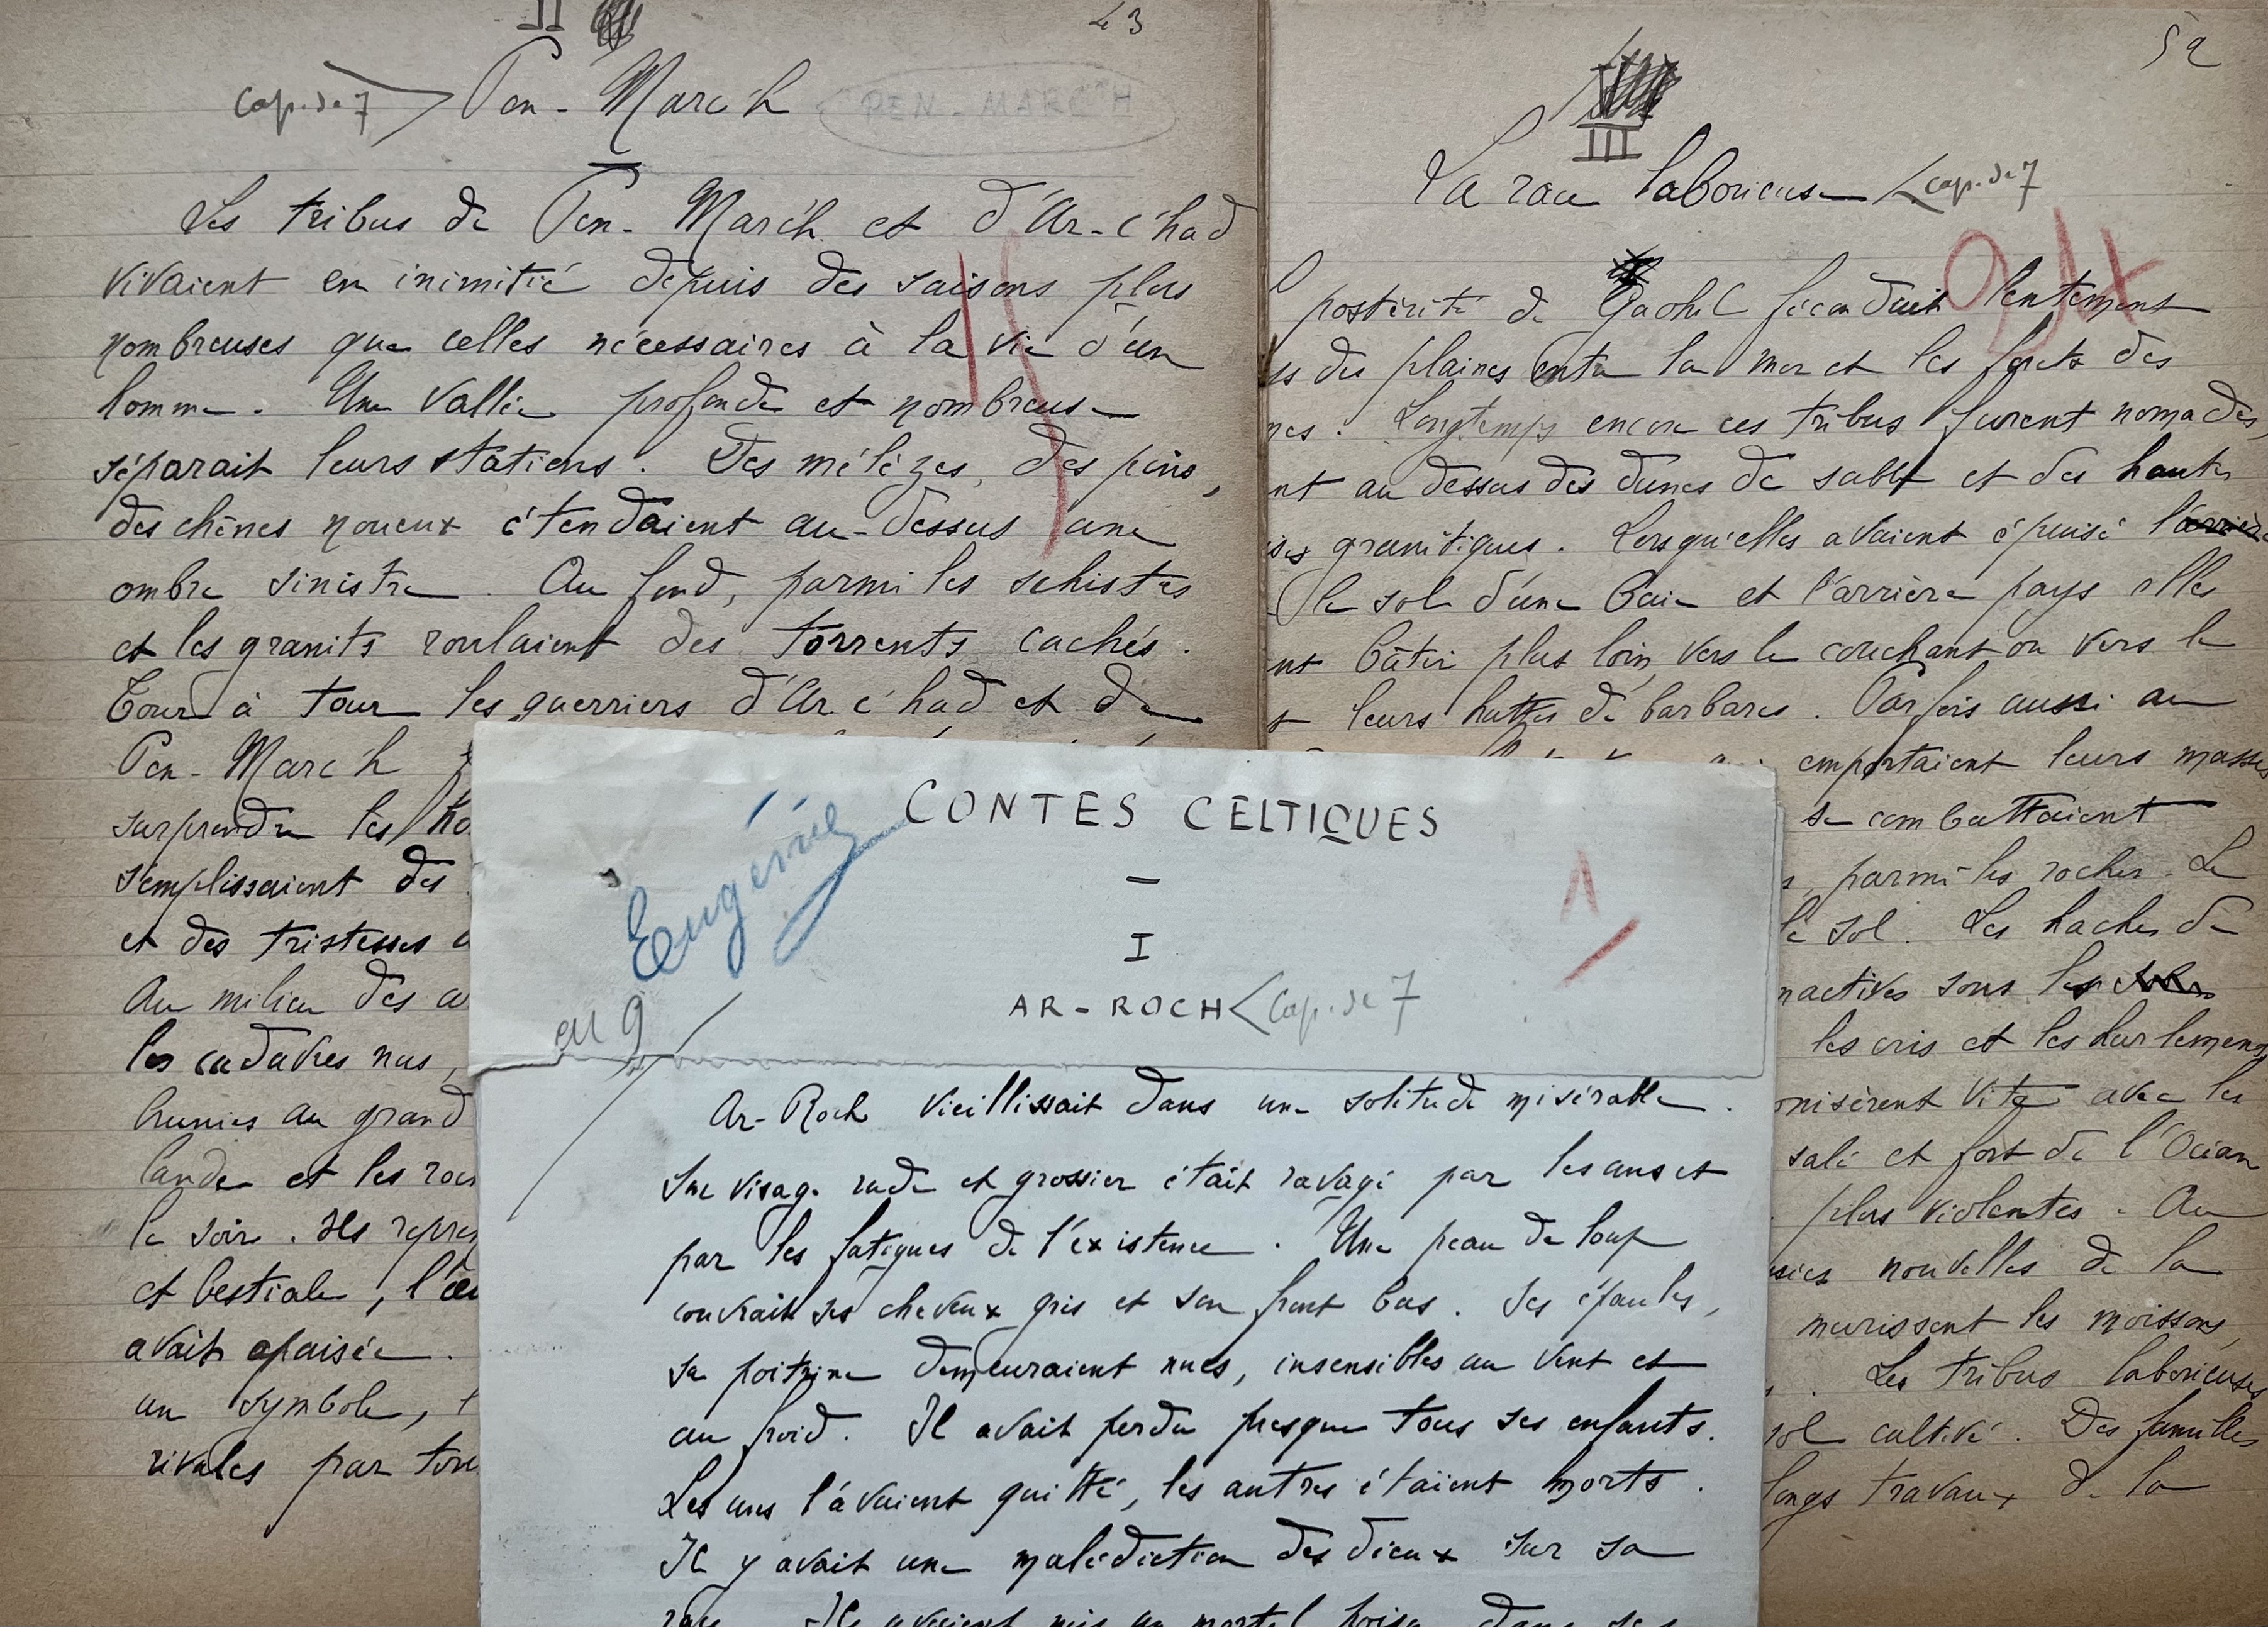 II
43
cap. de 7
Pen-Marc'h
PEN-MARC'H
Les tribus de Pen-Marc'h et d'Ar-c'had
vivaient en inimitié depuis des saisons plus
nombreuses que celles nécessaires à la vie d'un
homme. Une vallée profonde et nombreuse
séparait leurs stations. Des mélèzes, des pins,
des chênes noueux étendaient au-dessus une
ombre sinistre. Au fond, parmi les schistes
et les granits roulaient des torrents cachés.
Tour à tour les guerriers d'Ar c'had et de
Pen-Marc'h
surprendre les
s'emplissaient des
et des tristesses
Au milieu des
les cadavres nus,
brunies au grand
landes et les
le soir. Ils
et bestiale,
avait apaisée.
un symbole,
rivales par
52
III
La race laborieuse
cap. de 7
postérité de fécondait lentement
des plaines entre la mer et les forêts des
Longtemps encore ces tribus furent nomades,
au dessus des dunes de sable et des hautes
granitiques. Lorsqu'elles avaient épuisé l'arrière
le sol d'une baie et l'arrière pays elles
bâtir plus loin, vers le couchant ou vers le
leurs huttes de barbares. Parfois aussi au
emportaient leurs masses
se combattaient
parmi les rochers. Le
sol. Les haches de
sous les
les cris et les hurlements
vite avec les
salé et fort de l'Océan
plus violentes. Au
nouvelles de la
murissent les moissons,
Les tribus laborieuses
sol cultivé. Des familles
longs travaux de la
CONTES CELTIQUES
Eugénie
1
I
AR-ROCH
cap. de 7
au 9
Ar-Roch vieillissait dans une solitude misérable.
Son visage rude et grossier était ravagé par les ans et
par les fatigues de l'existence. Une peau de loup
couvrait ses cheveux gris et son front bas. Ses épaules,
sa poitrine demeuraient nues, insensibles au vent et
au froid. Il avait perdu presque tous ses enfants.
Les uns l'avaient quitté, les autres étaient morts.
Il y avait une malédiction des dieux sur sa
race. Ils avaient mis un mortel poison dans ses